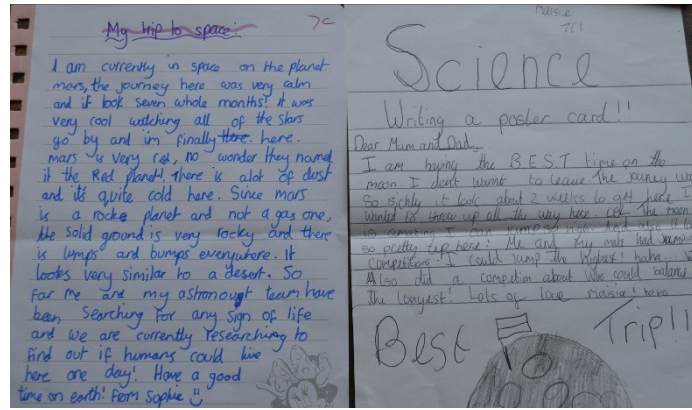 My trip to space
7C
I am currently in space on the planet
mars, the journey here was very calm
and it took seven whole months! It was
very cool watching all of the stars
go by and im finally there. here.
mars is very red, no wonder they named
it the Red planet!. There is alot of dust
and it's quite cold here. Since mars
is a rocky planet and not a gas one,
the solid ground is very rocky and there
is lumps and bumps everywhere. It
looks very similar to a desert. So
far me and my astronought team have
been searching for any sign of life
and we are currently researching to
find out if humans could live
here one day! Have a good
time on earth! From Sophie
Maisie
7C1
Science
Writing a poster card!!
Dear Mum and Dad,
I am having the B.E.S.T time on the
moon I don't want to leave The journey wa
So sickly it took about 2 weeks to get here I
wanted to throw up all the way here. The moon
is amazing I can jump so high And also it
so pretty up here! Me and my mate had
Competitions! I could jump the highest! haha.
Also did a competion about who could balance
The longest! Lots of love maisie! haha
Best Trip!!